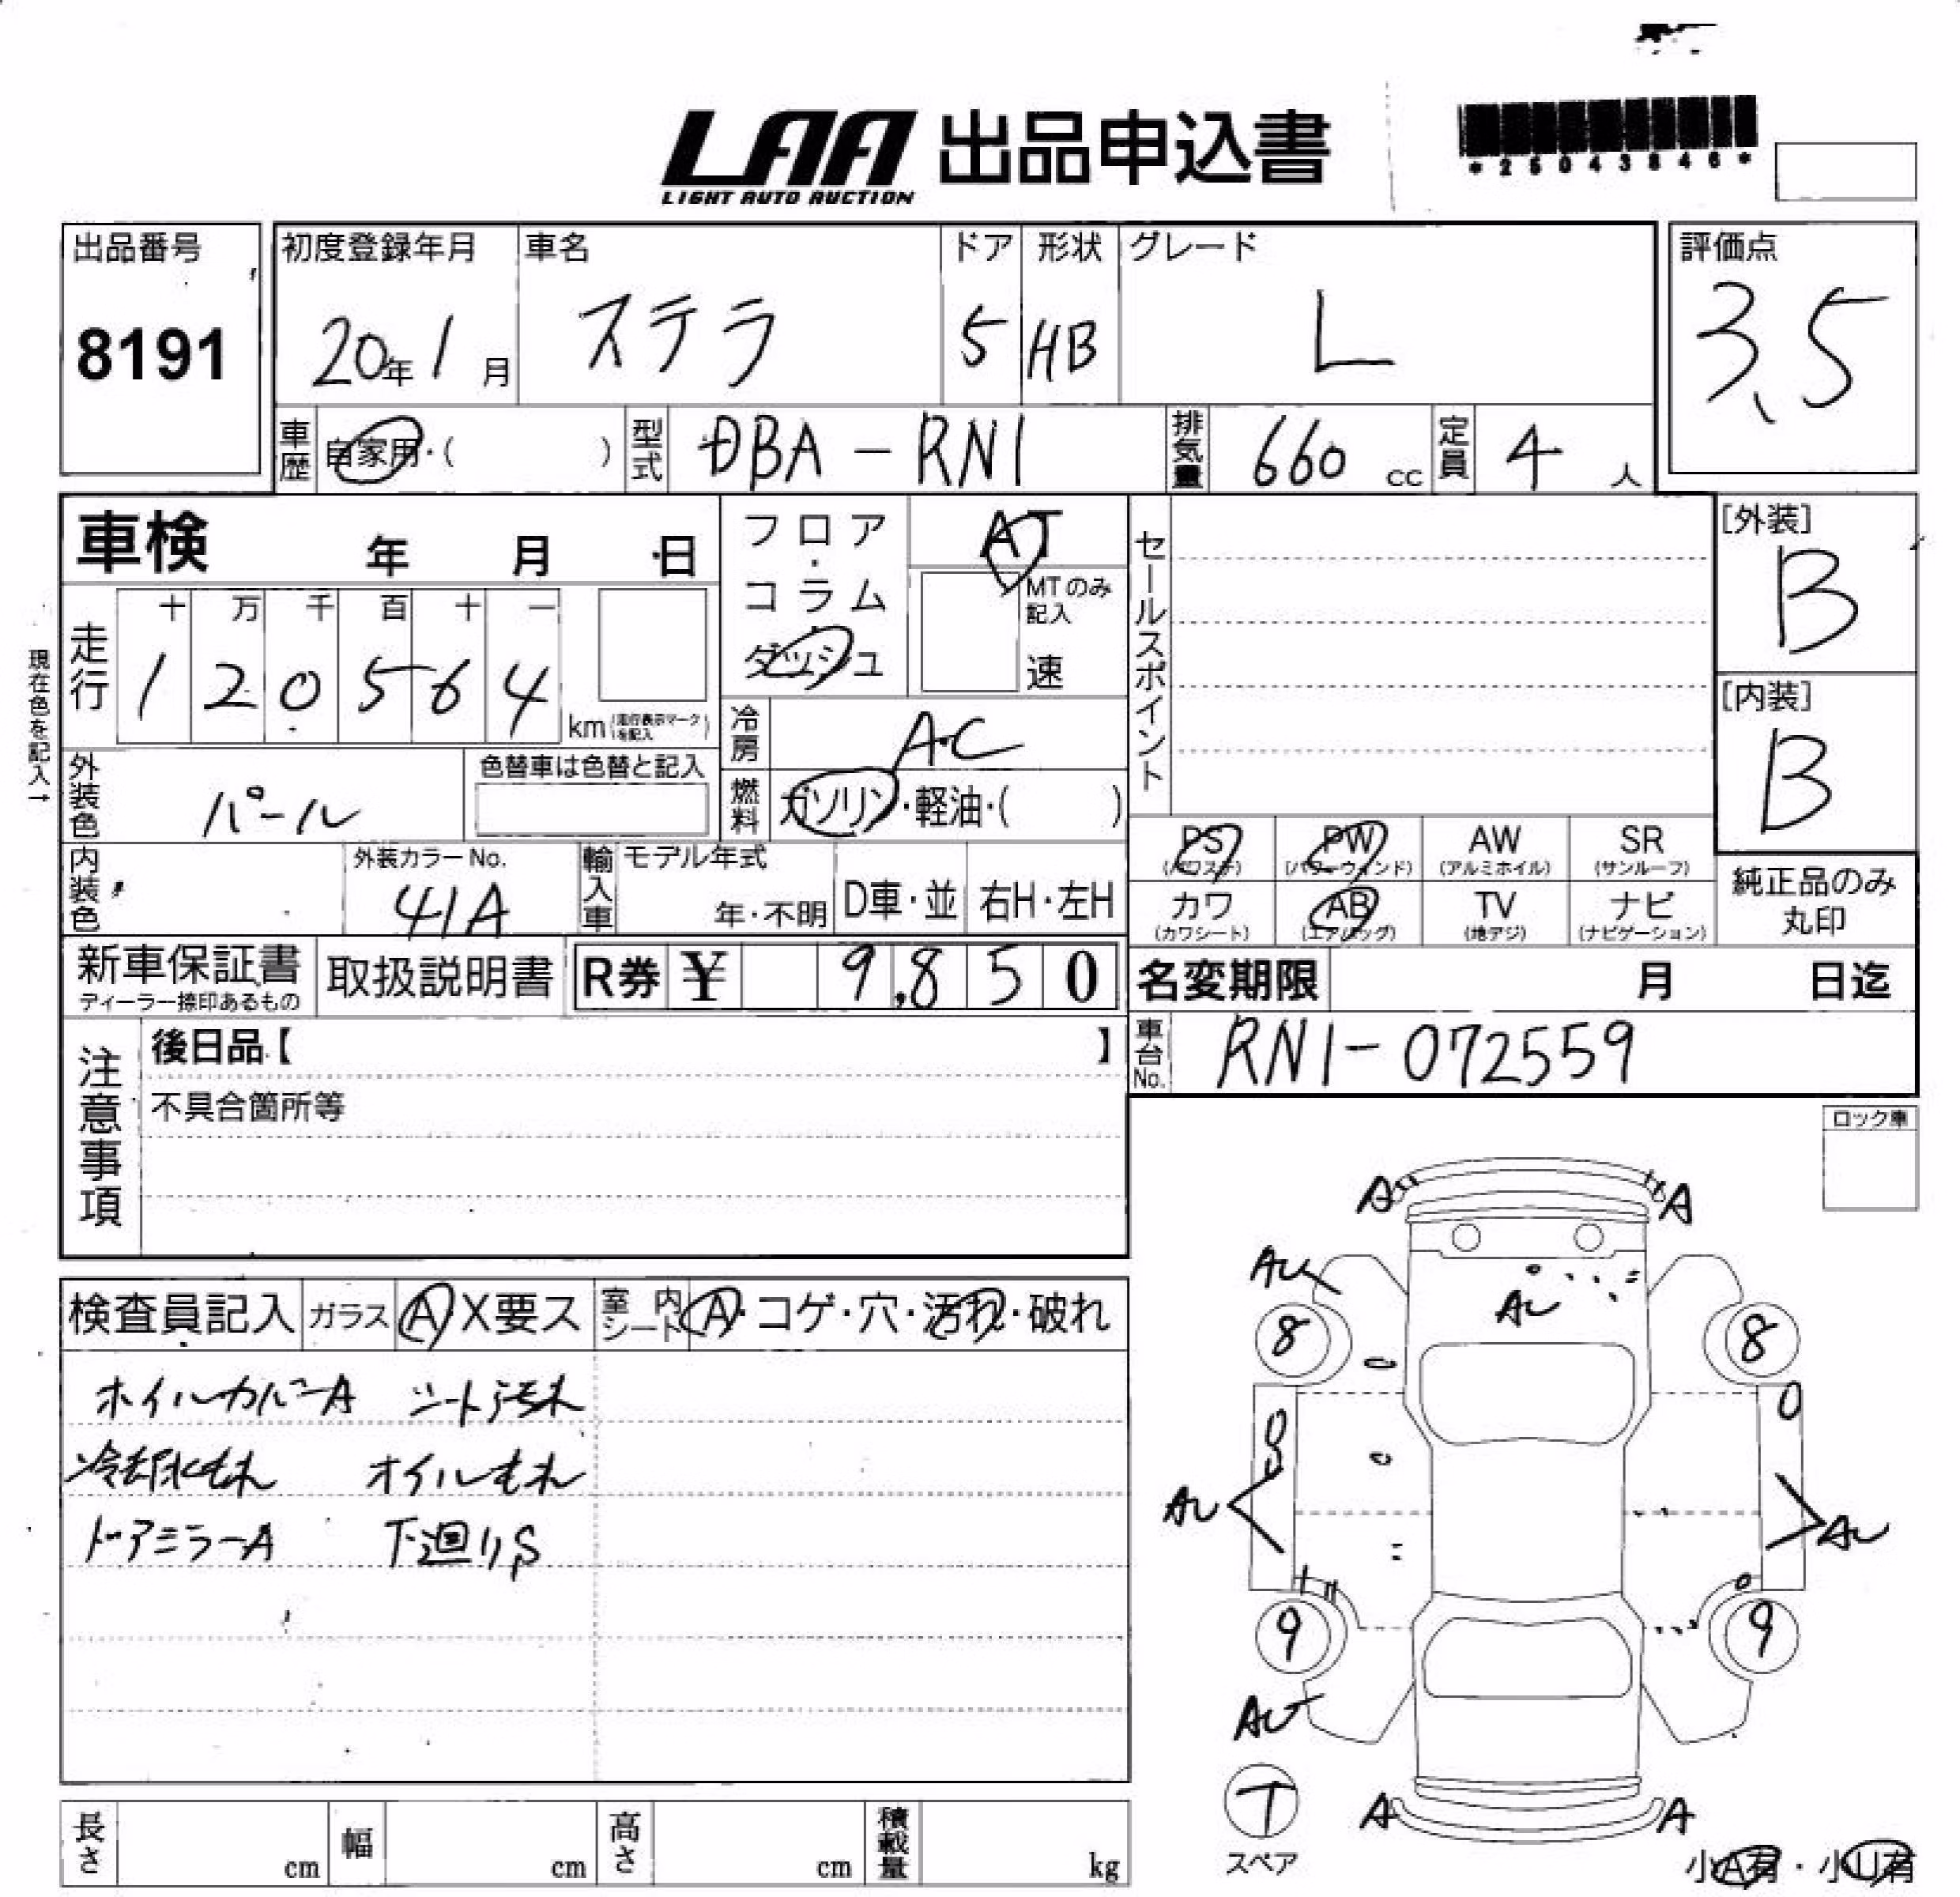 LAA 出品申込書
LIGHT AUTO AUCTION
*25043846*
出品番号 初度登録年月 車名 ドア 形状 グレード 評価点
8191 20年1月 ステラ 5 HB L 3.5
車歴 自家用・( ) 型式 DBA-RN1 排気量 660 cc 定員 4 人
車検 年 月 日
フロア・コラム・ダッシュ
AT
MTのみ記入
速
セールスポイント
[外装]
B
[内装]
B
現在色を記入→
走行 十 万 千 百 十 一
1 2 0 5 6 4 km (走行表示マークを記入)
冷房 AC
外装色 パール 色替車は色替と記入
燃料 ガソリン・軽油・( )
内装色 外装カラーNo. 41A
輸入車 モデル年式 年・不明 D車・並 右H・左H
PS (パワステ) PW (パワーウィンド) AW (アルミホイル) SR (サンルーフ)
カワ (カワシート) AB (エアバッグ) TV (地デジ) ナビ (ナビゲーション)
純正品のみ
丸印
新車保証書 取扱説明書 R券 ¥ 9,850
ディーラー捺印あるもの
名変期限 月 日迄
車台No. RN1-072559
注意事項
後日品【 】
不具合箇所等
ロック車
検査員記入 ガラス A X要ス 室内シート A・コゲ・穴・汚れ・破れ
ホイルカバーA シート汚れ
冷却水もれ オイルもれ
ドアミラーA 下廻りS
A A
AU
AU
8 8
AU AU
9 9
AU
T
スペア
A A
小A有・小U有
長さ cm 幅 cm 高さ cm 積載量 kg